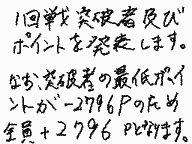 1回戦突破者及び
ポイントを発表します。
なお、突破者の最低ポイ
ントが-2796Pのため
全員+2796Pとなります。